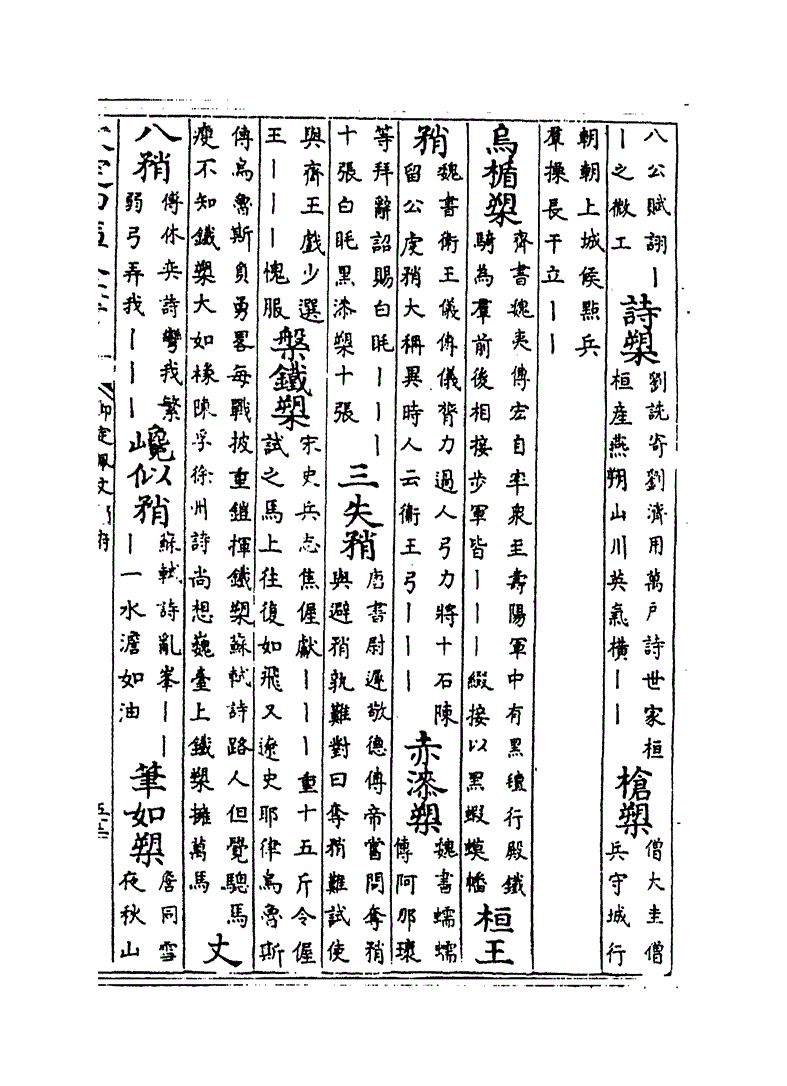 八公賦詡丨
丨之微工
詩槊
劉詵寄劉濟用萬戸詩世家桓
桓産燕朔山川英氣橫丨丨
槍槊
僧大圭僧
兵守城行
朝朝上城候點兵
羣操長干立丨丨
烏楯槊
齊書魏夷傳宏自率衆至壽陽軍中有黑氊行殿鐵
騎為羣前後相接步軍皆丨丨丨綴接以黑蝦蟆幡
桓王
矟
魏書衛王儀傳儀膂力過人弓力將十石陳
留公虔矟大稱異時人云衛王弓丨丨丨
赤漆槊
魏書蠕蠕
傳阿那瓌
等拜辭詔賜白眊丨丨丨
十張白眊黑漆槊十張
三失矟
唐書尉遲敬德傳帝嘗問奪矟
與避矟孰難對曰奪矟難試使
與齊王戲少選
王丨丨丨愧服
槃鐵槊
宋史兵志焦偓獻丨丨丨重十五斤令偓
試之馬上往復如飛又遼史耶律烏魯斯
傳烏魯斯負勇畧每戰披重鎧揮鐵槊蘇軾詩路人但覺驄馬
瘦不知鐵槊大如椽陳孚徐州詩尚想巍臺上鐵槊擁萬馬
丈
八矟
傅休奕詩彎我繁
弱弓弄我丨丨丨
巉似矟
蘇軾詩亂峯丨丨
丨一水澹如油
筆如槊
詹同雪
夜秋山